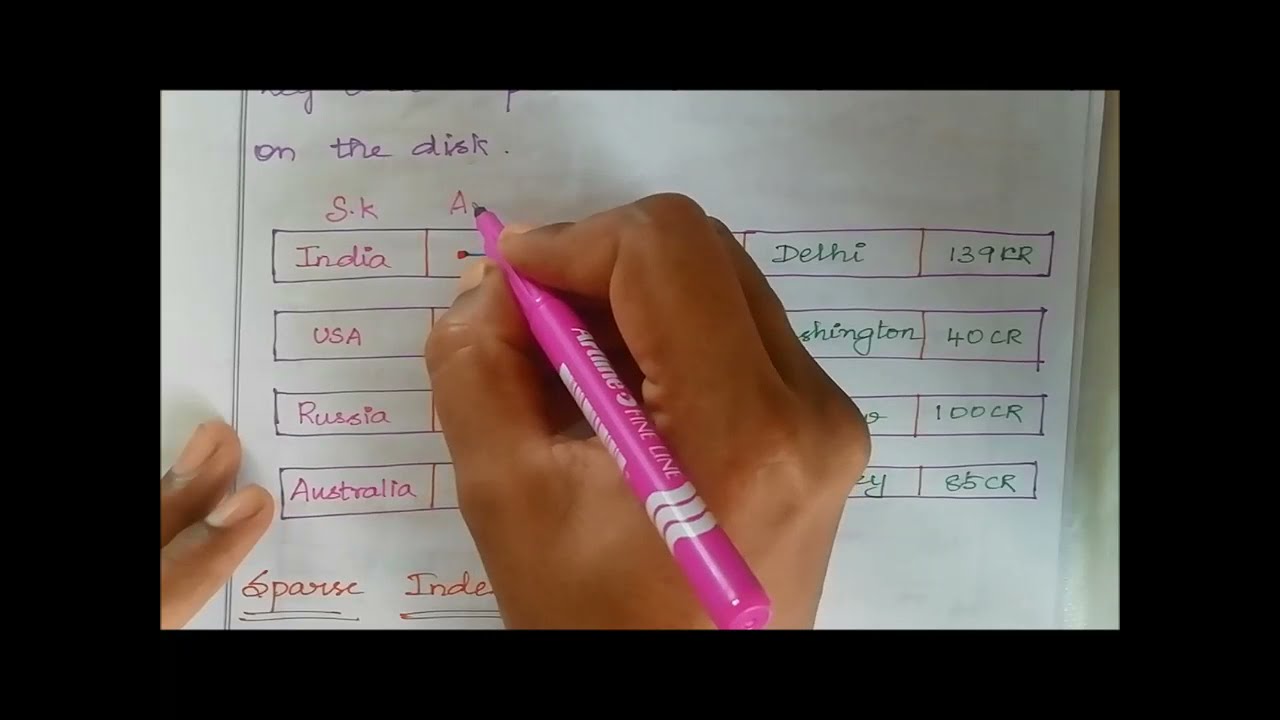 on the disk.
S.K A
India Delhi 139CR
USA 40CR
Russia 100CR
Australia 85CR
Sparse
Artline 5 FINE LINE